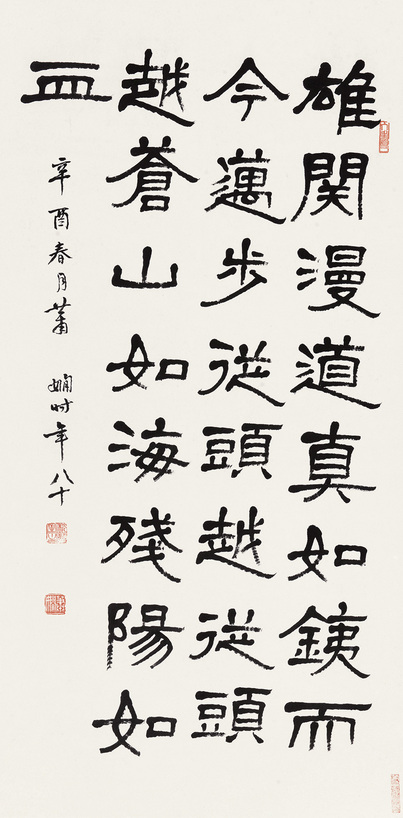 雄関漫道真如銕而
今邁步從頭越從頭
越蒼山如海殘陽如
血
辛酉春月蕭嫻時年八十